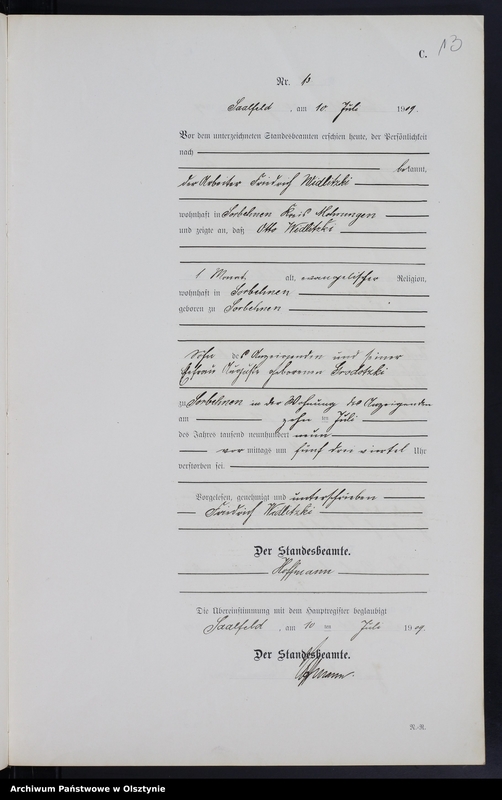 13
C.
Nr. 13
Saalfeld, am 10. Juli 1909.
Vor dem unterzeichneten Standesbeamten erschien heute, der Persönlichkeit
nach
bekannt,
der Arbeiter Friedrich Widlitzki
wohnhaft in Sorbehnen Kreis Mohrungen
und zeigte an, daß Otto Widlitzki
1 Monat alt, evangelischer Religion,
wohnhaft in Sorbehnen
geboren zu Sorbehnen
Sohn des Anzeigenden und seiner
Ehefrau Auguste geborenen
zu Sorbehnen in der Wohnung des Anzeigenden
am zehn ten Juli
des Jahres tausend neunhundert neun
vor mittags um fünf drei viertel Uhr
verstorben sei.
Vorgelesen, genehmigt und unterschrieben
Friedrich Widlitzki
Der Standesbeamte.
Hoffmann
Die Übereinstimmung mit dem Hauptregister beglaubigt
Saalfeld, am 10 ten Juli 1909.
Der Standesbeamte.
Hoffmann.
R.-R.
Archiwum Państwowe w Olsztynie